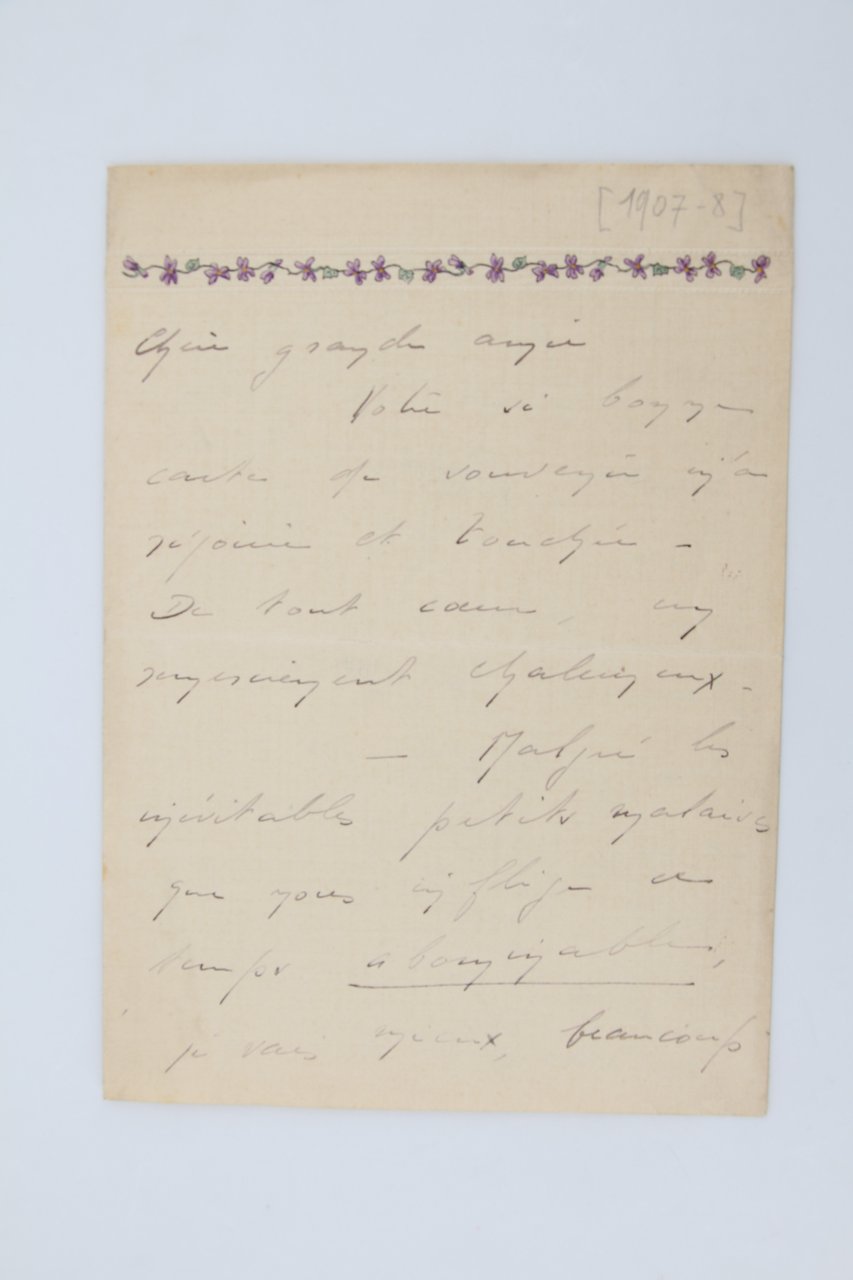 [1907-8]
Chère grande amie
Votre si bonne
carte de souvenir m'a
réjouie et touchée -
De tout cœur, un
remerciement chaleureux -
— Malgré les
inévitables petits malaises
que nous inflige ce
temps abominable,
je vais mieux, beaucoup